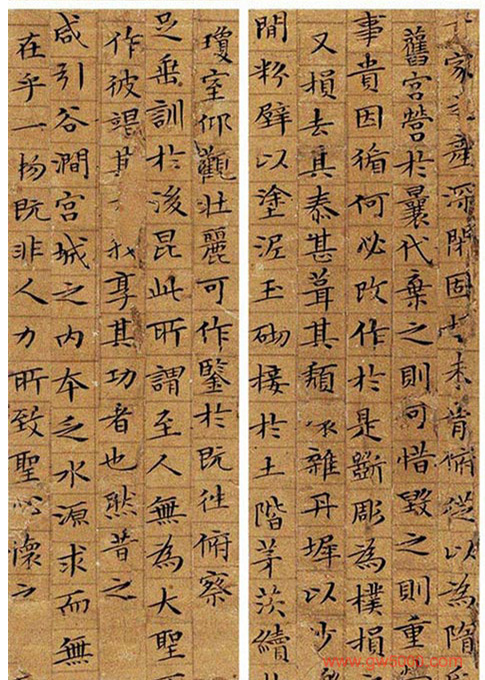 家產深閉固未肯俯從以為隋
舊宮營於曩代棄之則可惜毀之則重
事貴因循何必改作於是斲彫為樸損
又損去其泰甚葺其頹雜丹墀以沙
間粉壁以塗泥玉砌接於土階茅茨續
瓊室仰觀壯麗可作鑒於既往俯察
足垂訓於後昆此所謂至人無為大聖
作彼竭其我享其功者也然昔之
咸引谷澗宮城之內本乏水源求而無
在乎一物既非人力所致聖心懷之